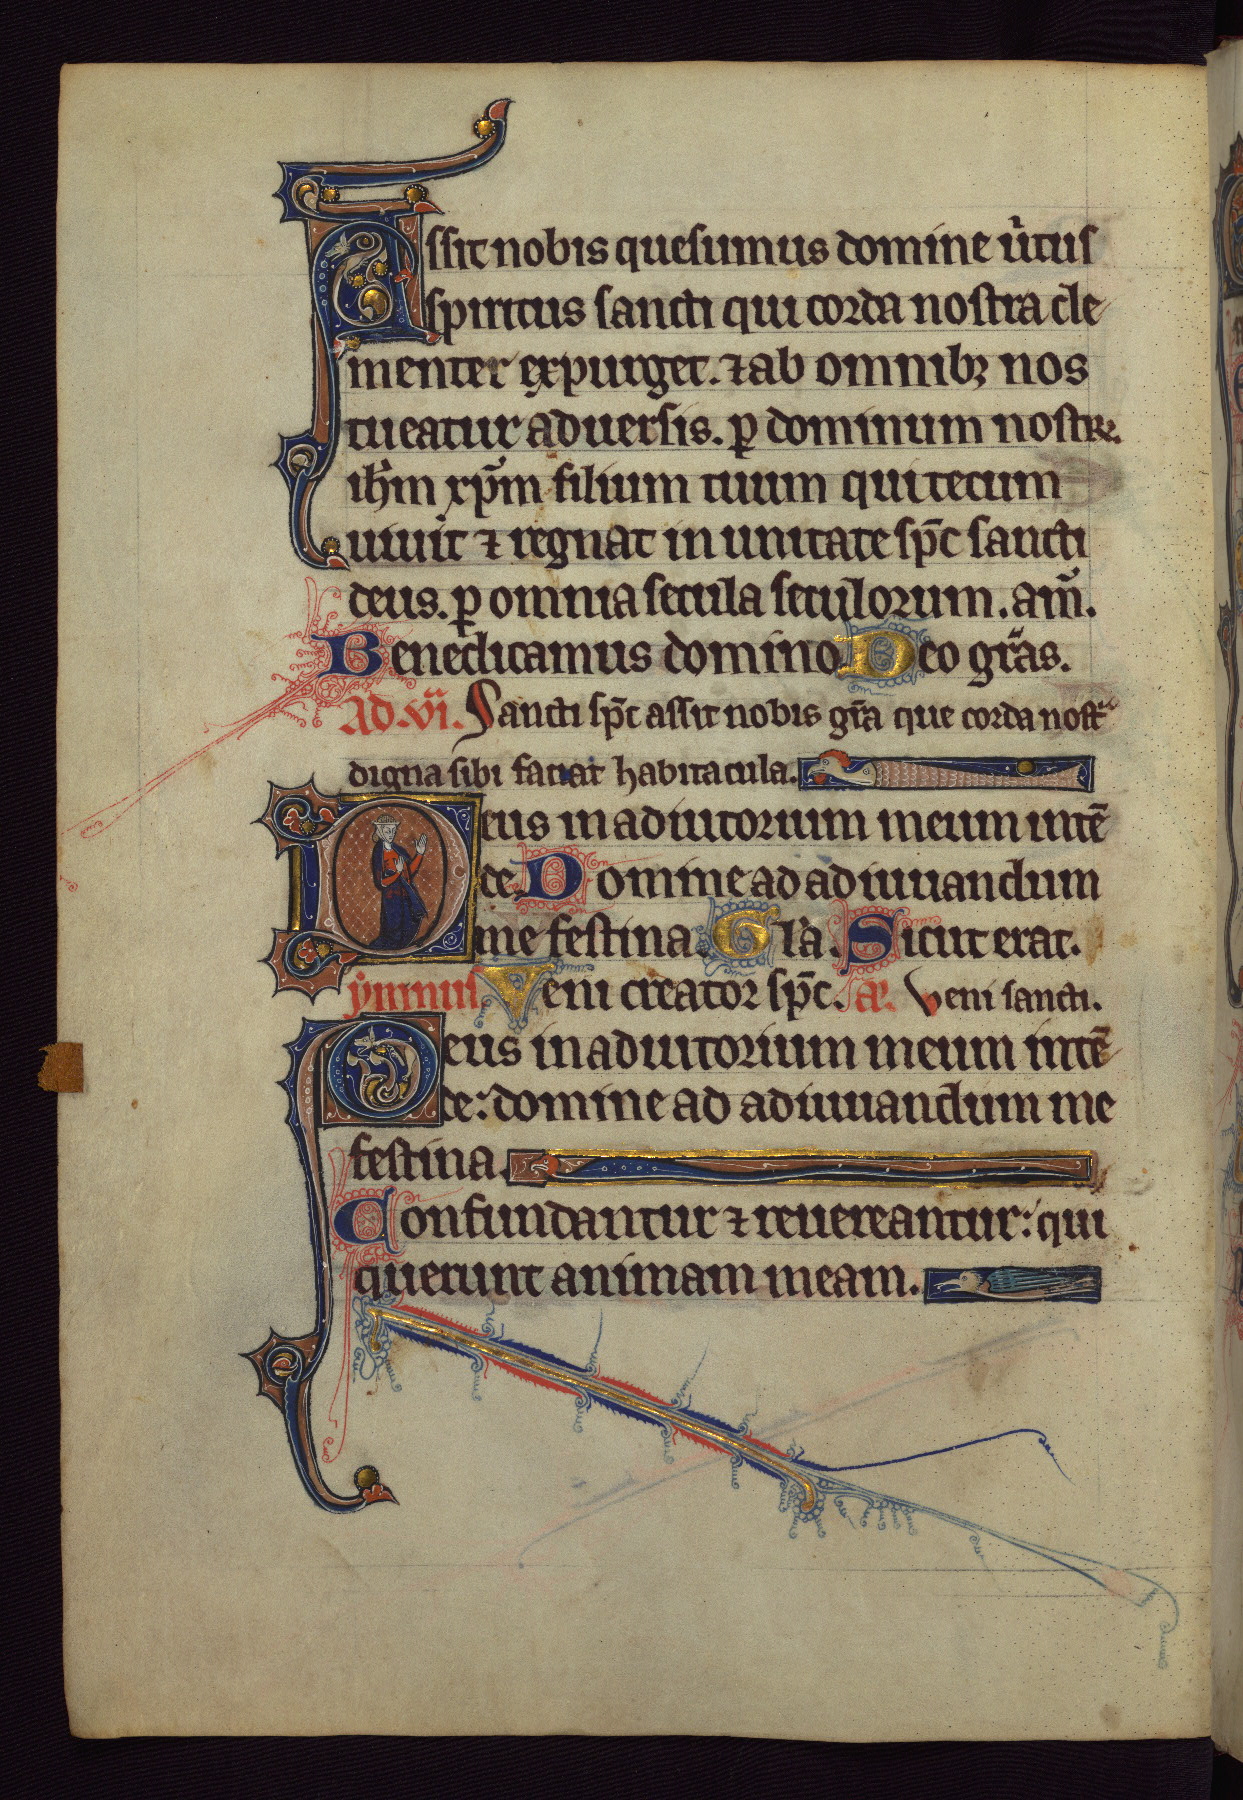 Assit nobis quesumus domine ũtus
spiritus sancti qui corda nostra cle
menter expurget. ⁊ ab omnibꝫ nos
tueatur aduersis. ꝑ dominum nostrꝝ.
ihm̃ xp̃m filium tuum qui tecum
uiuit ⁊ regnat in unitate sp̃c sancti
deus. ꝑ omnia secula seculorum. am̃.
Benedicamus domino Deo gr̃as.
Ad .vi. Sancti sp̃c assit nobis gr̃a que corda nostr̃
digna sibi faciat habitacula.
Deus in adiutorium meum intẽ
de. Domine ad adiuuandum
me festina. Gl̃a. Sicut erat.
ymnus Veni creator sp̃c. añ. Veni sancti.
Deus in adiutorium meum intẽ
de: domine ad adiuuandum me
festina.
Confundantur ⁊ reuereantur: qui
querunt animam meam.